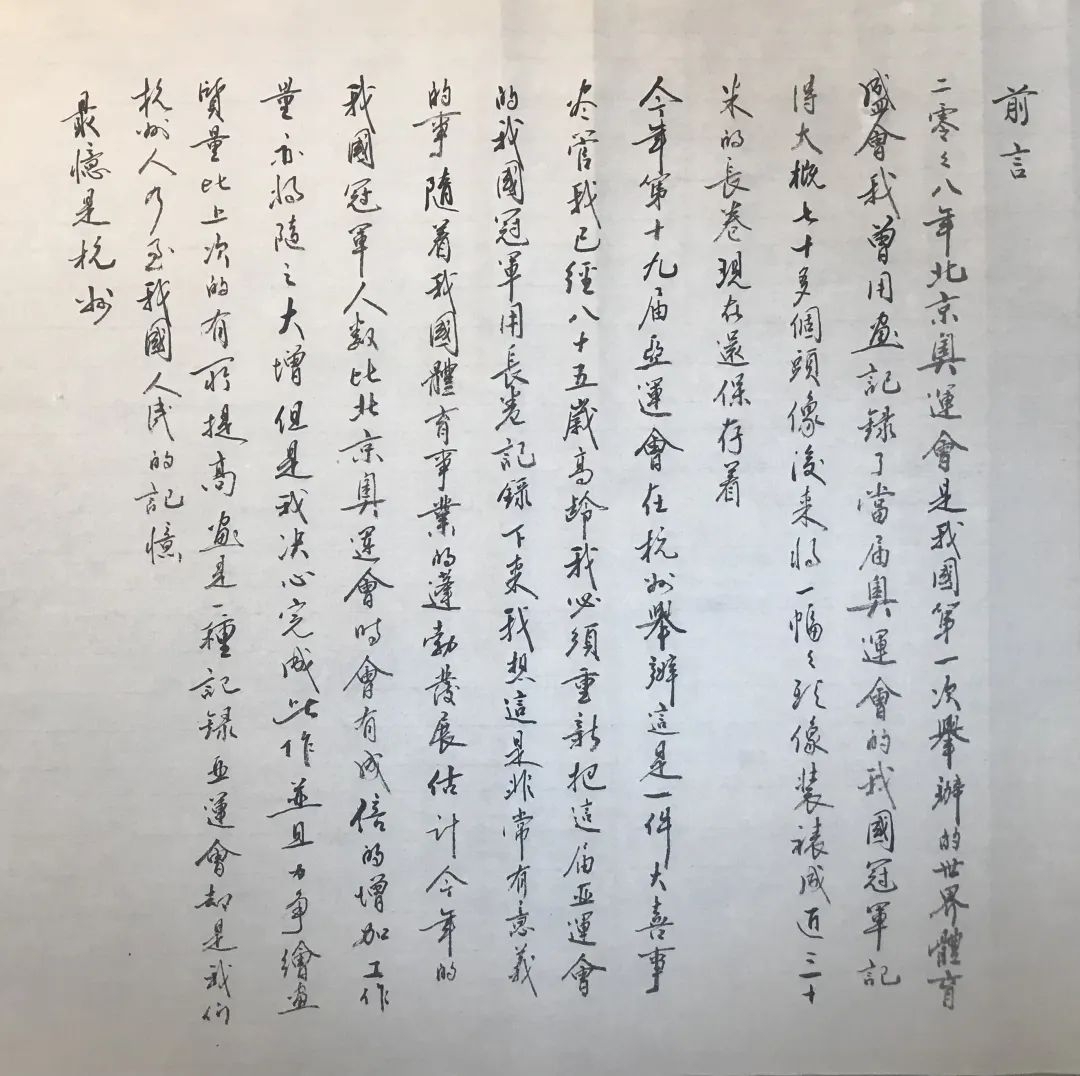 前言
二零々八年北京奧運會是我國第一次舉辦的世界體育
盛會我曾用畫記錄了當届奧運會的我國冠軍記
得大概七十多個頭像後来將一幅々頭像装裱成近三十
米的長卷現在還保存着
今年第十九届亞運會在杭州舉辦這是一件大喜事
尽管我已經八十五歲高龄我必須重新把這届亚運會
的我國冠軍用長卷記錄下来我想這是非常有意義
的事隨着我國體育事業的蓬勃發展估計今年的
我國冠軍人数比北京奧運會時會有成倍的增加工作
量亦將隨之大增但是我决心完成此作並且力争繪畫
質量比上次的有所提高畫是一種記錄亚運會却是我們
杭州人乃至我國人民的記憶
最憶是杭州